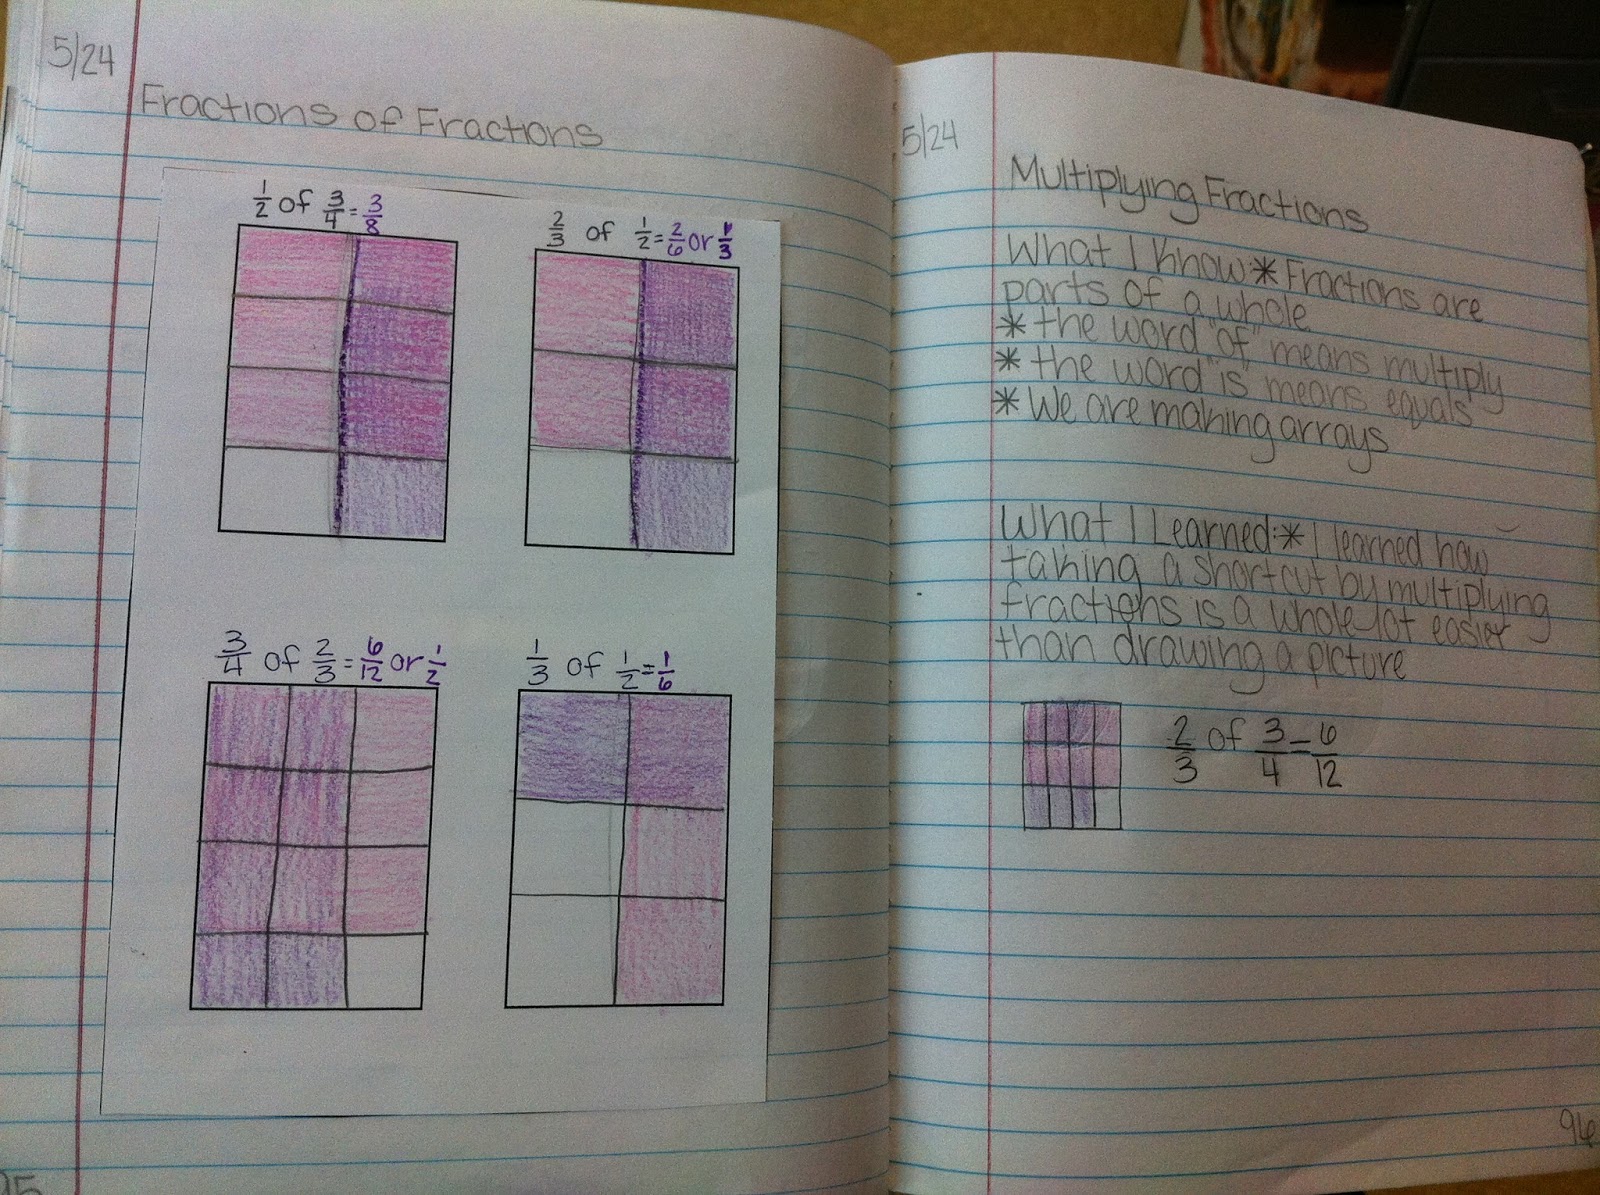 5/24
Fractions of Fractions
1/2 of 3/4 = 3/8
2/3 of 1/2 = 2/6 or 1/3
3/4 of 2/3 = 6/12 or 1/2
1/3 of 1/2 = 1/6
5/24
Multiplying Fractions
What I know: * Fractions are
parts of a whole
* the word "of" means multiply
* the word "is" means equals
* We are making arrays
What I Learned: * I learned how
taking a shortcut by multiplying
fractions is a whole lot easier
than drawing a picture
2/3 of 3/4 = 6/12
96